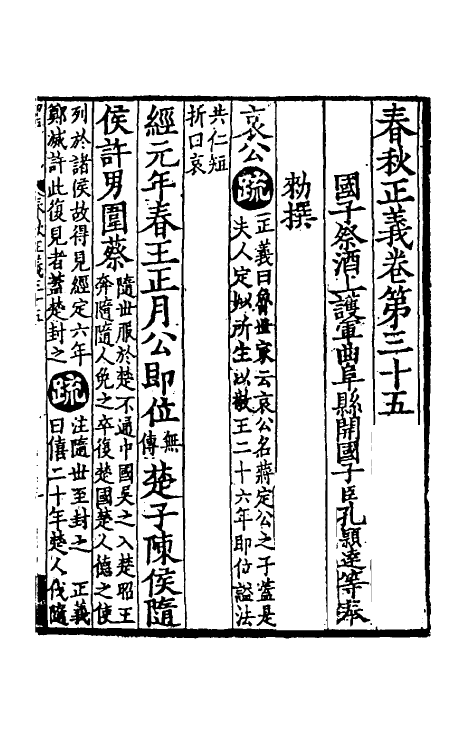 春秋正義卷第三十五
國子祭酒上護軍曲阜縣開國子臣孔穎達等奉
勑撰
哀公疏正義曰魯世家云哀公名蔣定公之子蓋是
夫人定姒所生以敬王二十六年即位謚法
共仁短
折曰哀
經元年春王正月公即位無
傳楚子陳侯隨
侯許男圍蔡隨世服於楚不通中國吳之入楚昭王
奔隨隨人免之卒復楚國楚人德之使
列於諸侯故得見經定六年
鄭滅許此復見者蓋楚封之疏注隨世至封之 正義
曰僖二十年楚人伐隨